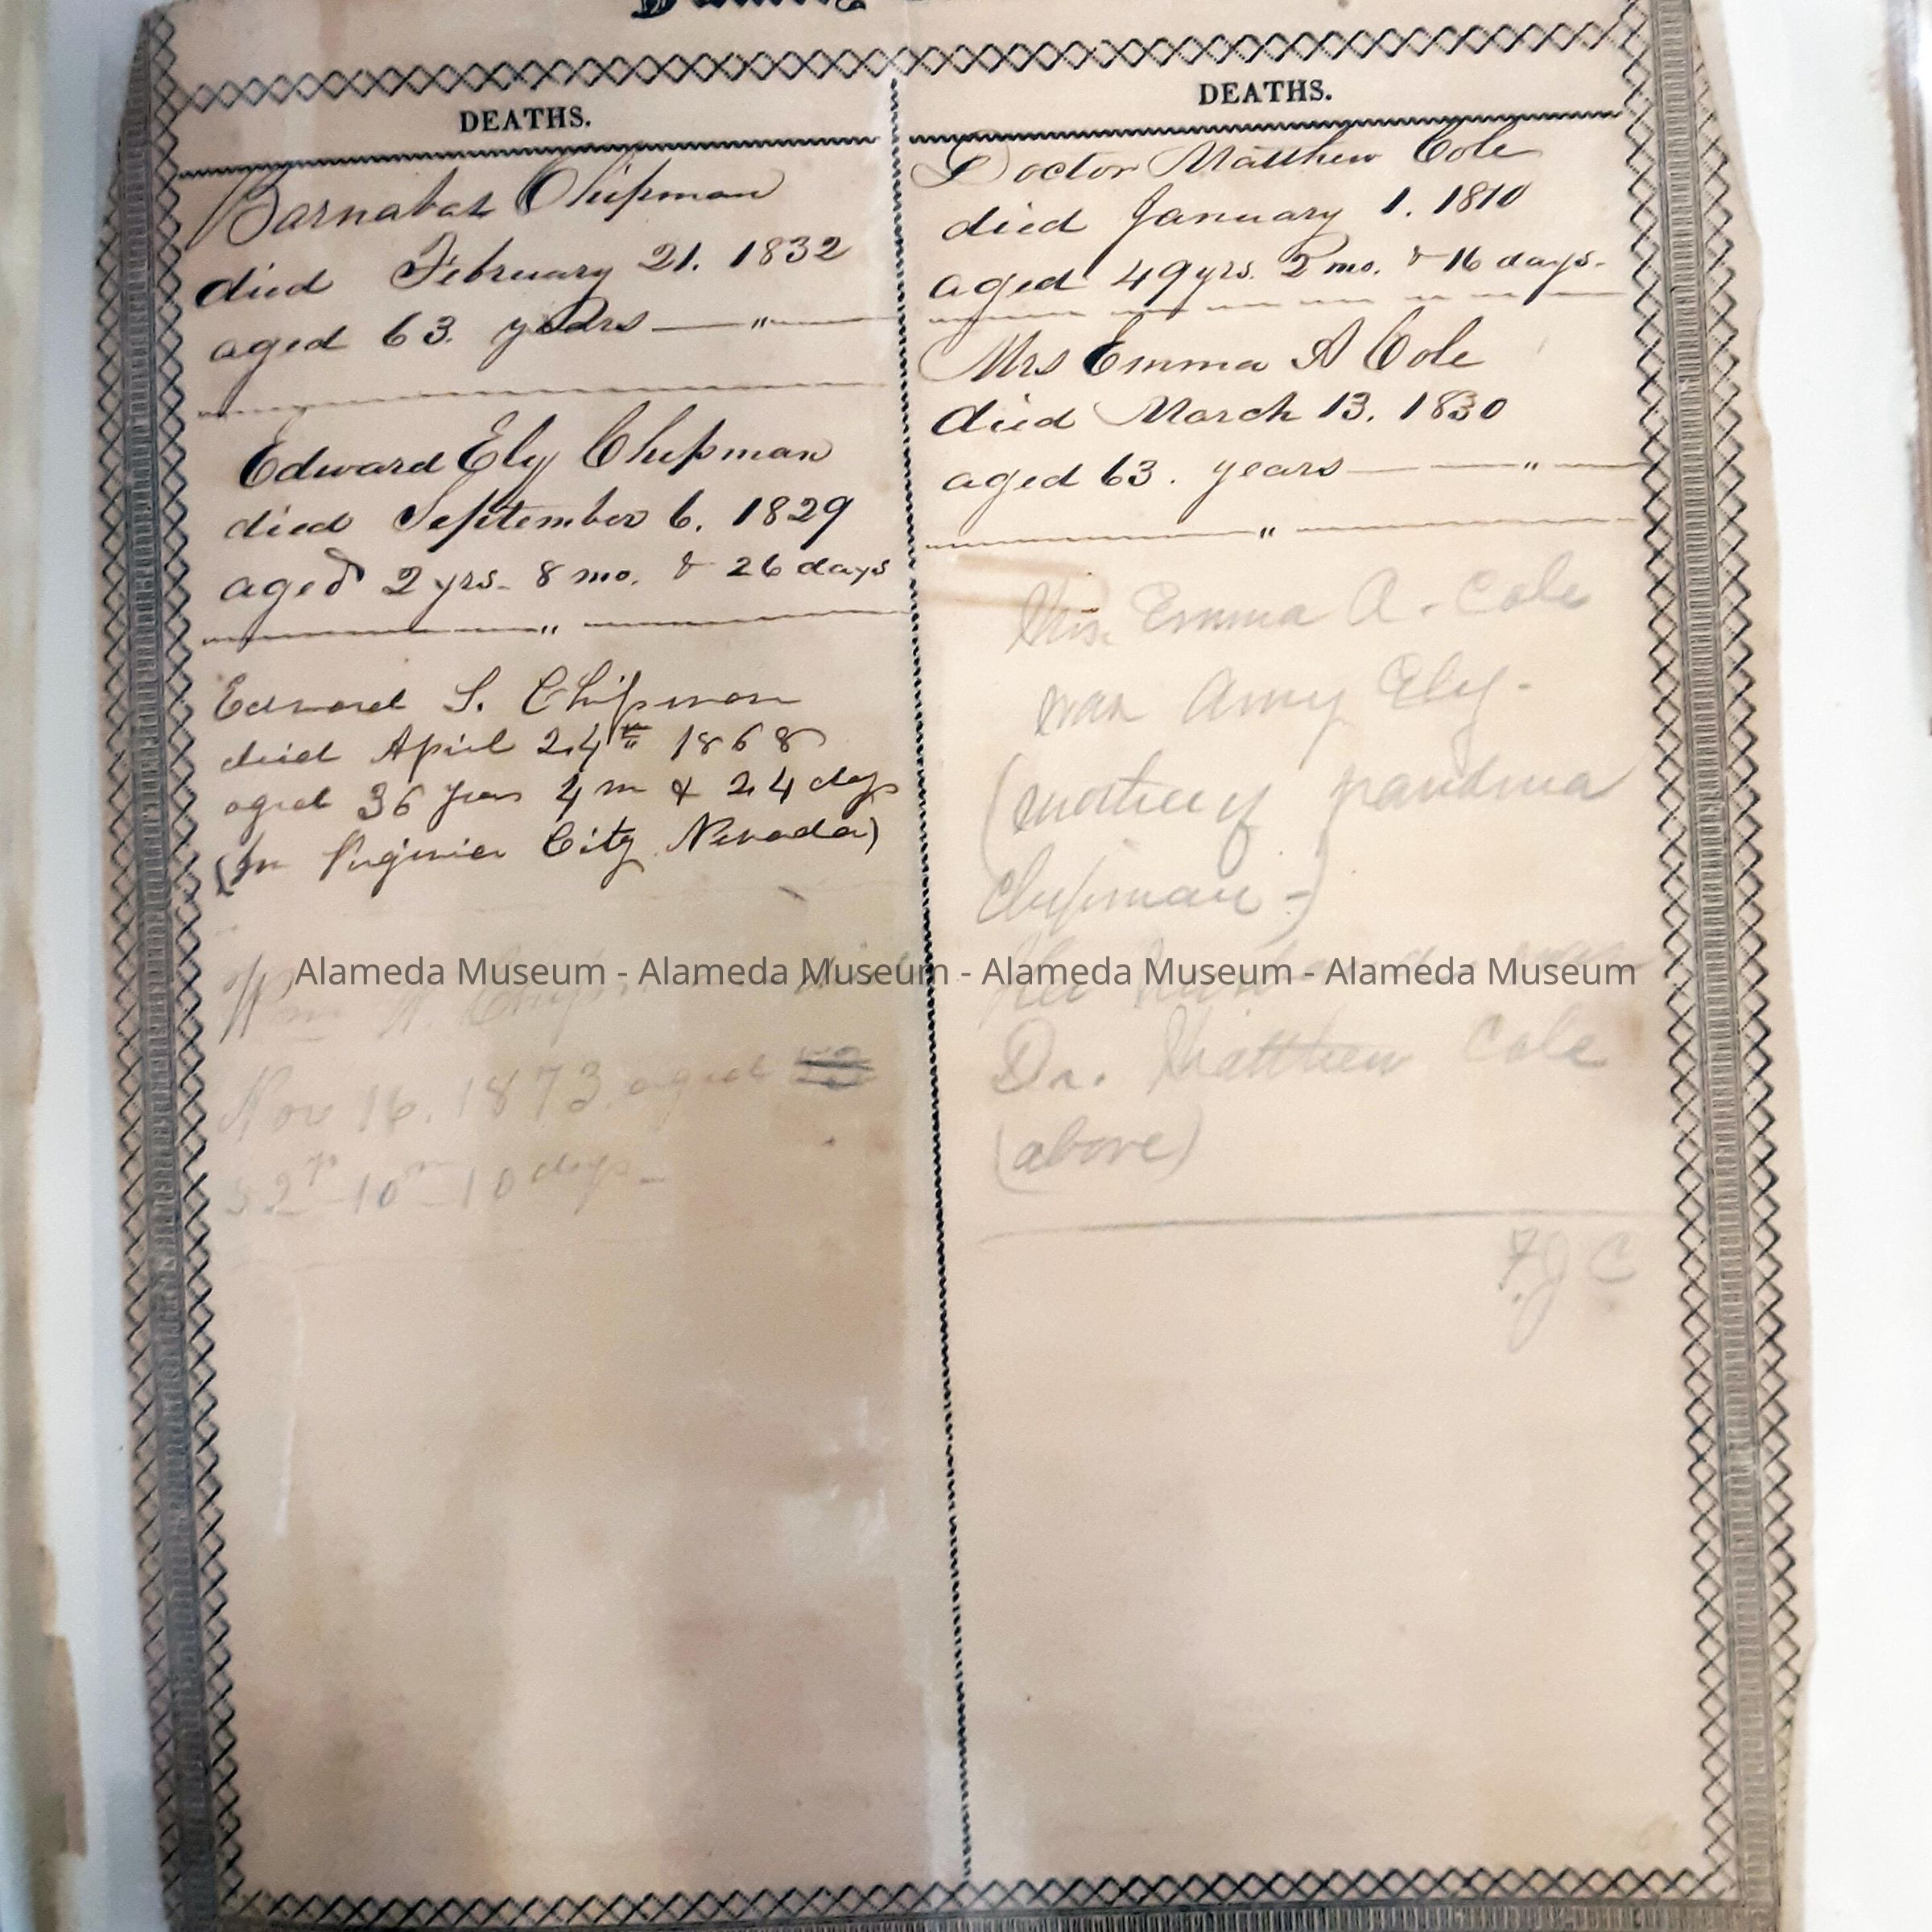 DEATHS.
Barnabas Chipman
died February 21. 1832
aged 63. years — " —
Edward Ely Chipman
died September 6. 1829
aged 2 yrs. 8 mo. & 26 days
"
Edward S. Chipman
died April 24th 1868
aged 36 years 4 m & 24 dys
(In Virginia City Nevada)
Wm W. Chip
Nov 16. 1873 aged
52 yr 10 m 10 days -
DEATHS.
Doctor Matthew Cole
died January 1. 1810
aged 49 yrs. 2 mo. & 16 days.
Mrs Emma A Cole
died March 13. 1830
aged 63. years — — " —
"
Mrs. Emma A. Cole
was Amy Ely -
(mother of grandma
Chipman -)
Her husband was
Dr. Matthew Cole
(above)
F.J.C.
Alameda Museum - Alameda Museum - Alameda Museum - Alameda Museum